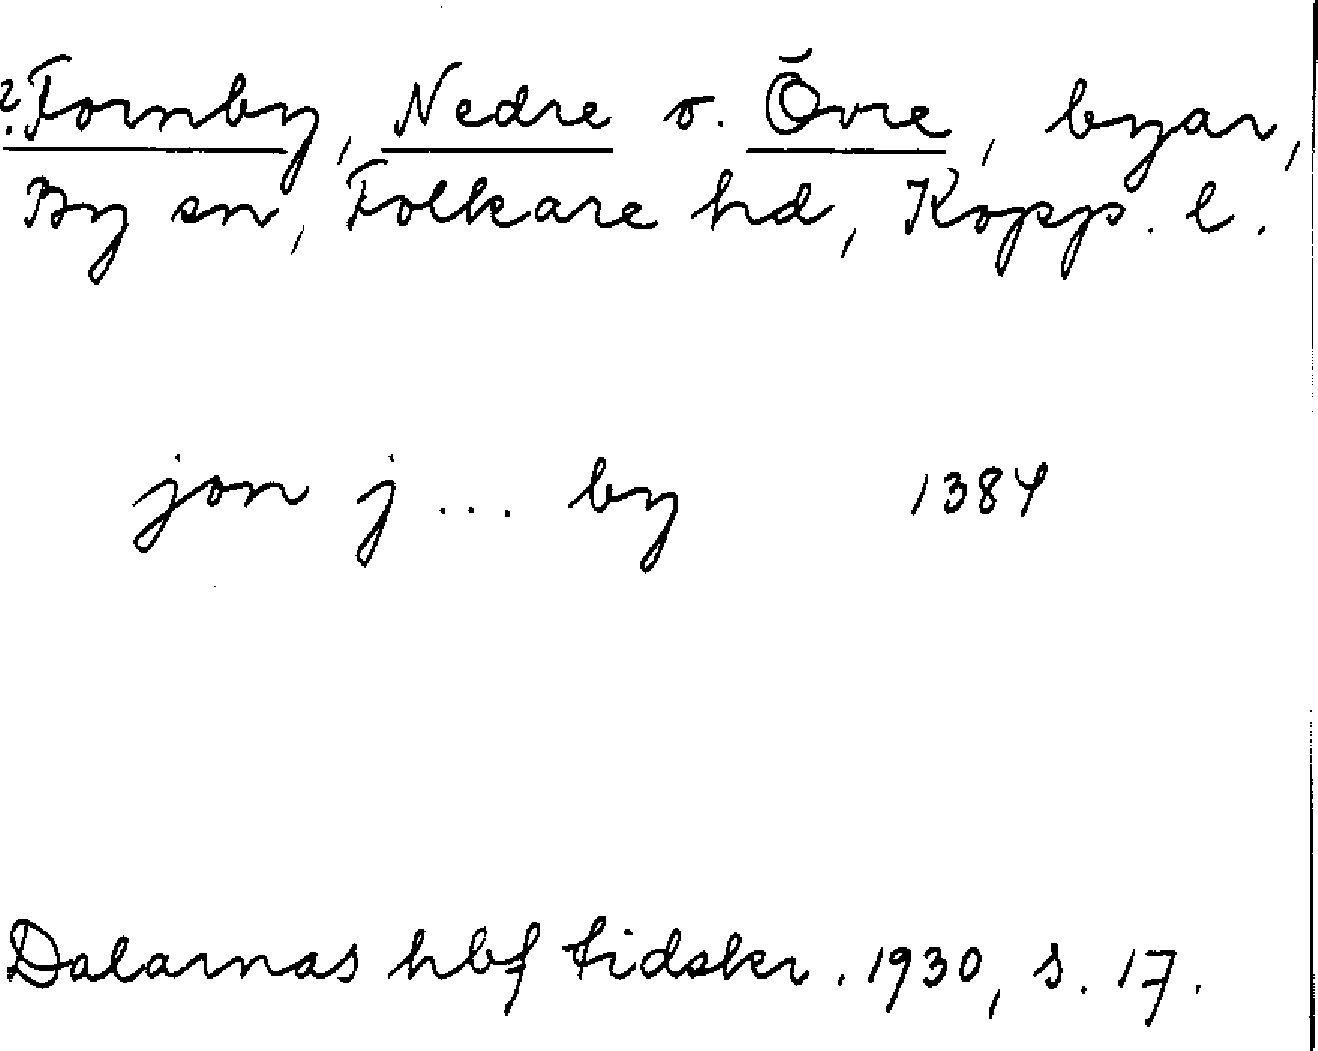 ?Fornby, Nedre o. Övre, byar,
By sn, Folkare hd, Kopp. l.
jon j ... by 1384
Dalarnas hbf tidskr. 1930, s. 17.